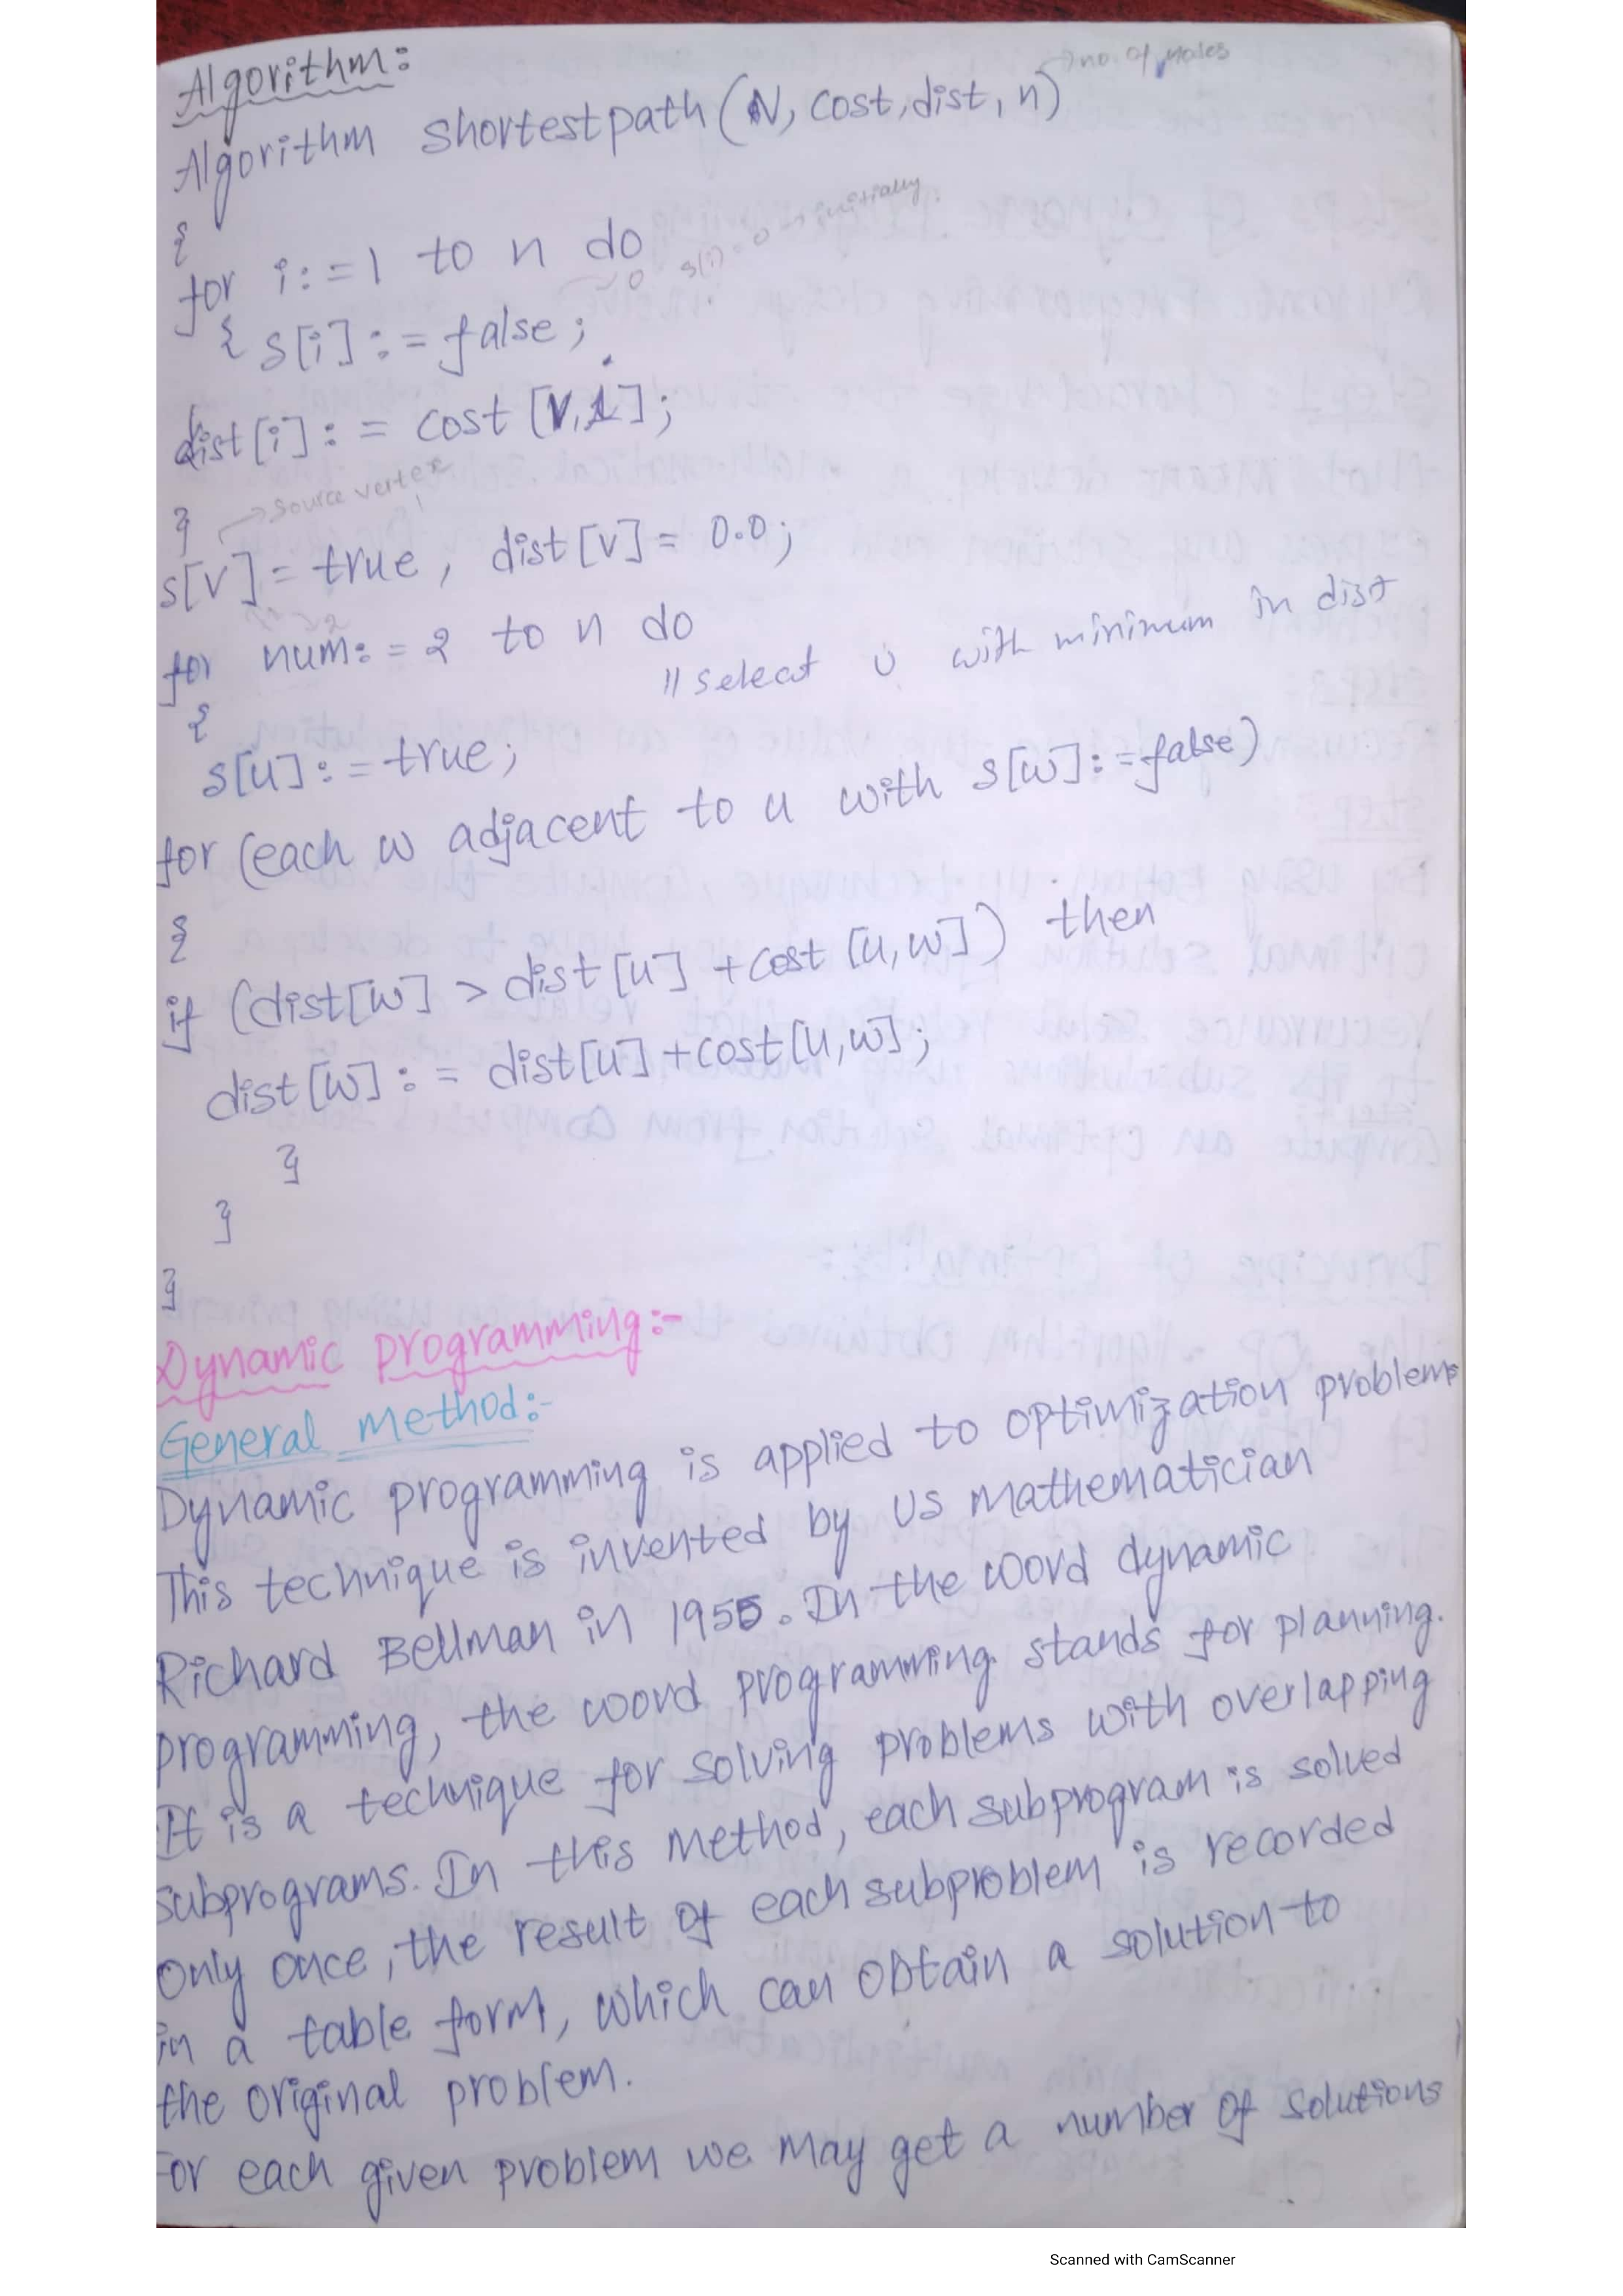 Algorithm:
→ no. of nodes
Algorithm shortestpath (N, cost, dist, n)
{
for i:=1 to n do
0 s(i)=0 initially.
{ s[i] := false ;
dist[i] := cost [V,i];
}
→ source vertex
s[v] = true , dist[v] = 0.0 ;
for num := 2 to n do
// select u with minimum in dist
{
s[u] := true ;
for (each w adjacent to u with s[w] := false)
{
if (dist[w] > dist[u] + cost [u,w]) then
dist[w] := dist[u] + cost[u,w] ;
}
}
}
Dynamic programming:-
General method:-
Dynamic programming is applied to optimization problems
This technique is invented by US mathematician
Richard Bellman in 1955. In the woord dynamic
programming, the woord programming stands for planning.
It is a technique for solving problems with overlapping
subprograms. In this method, each subprogram is solved
only once, the result of each subproblem is recorded
in a table form, which can obtain a solution to
the original problem.
For each given problem we may get a number of solutions
Scanned with CamScanner